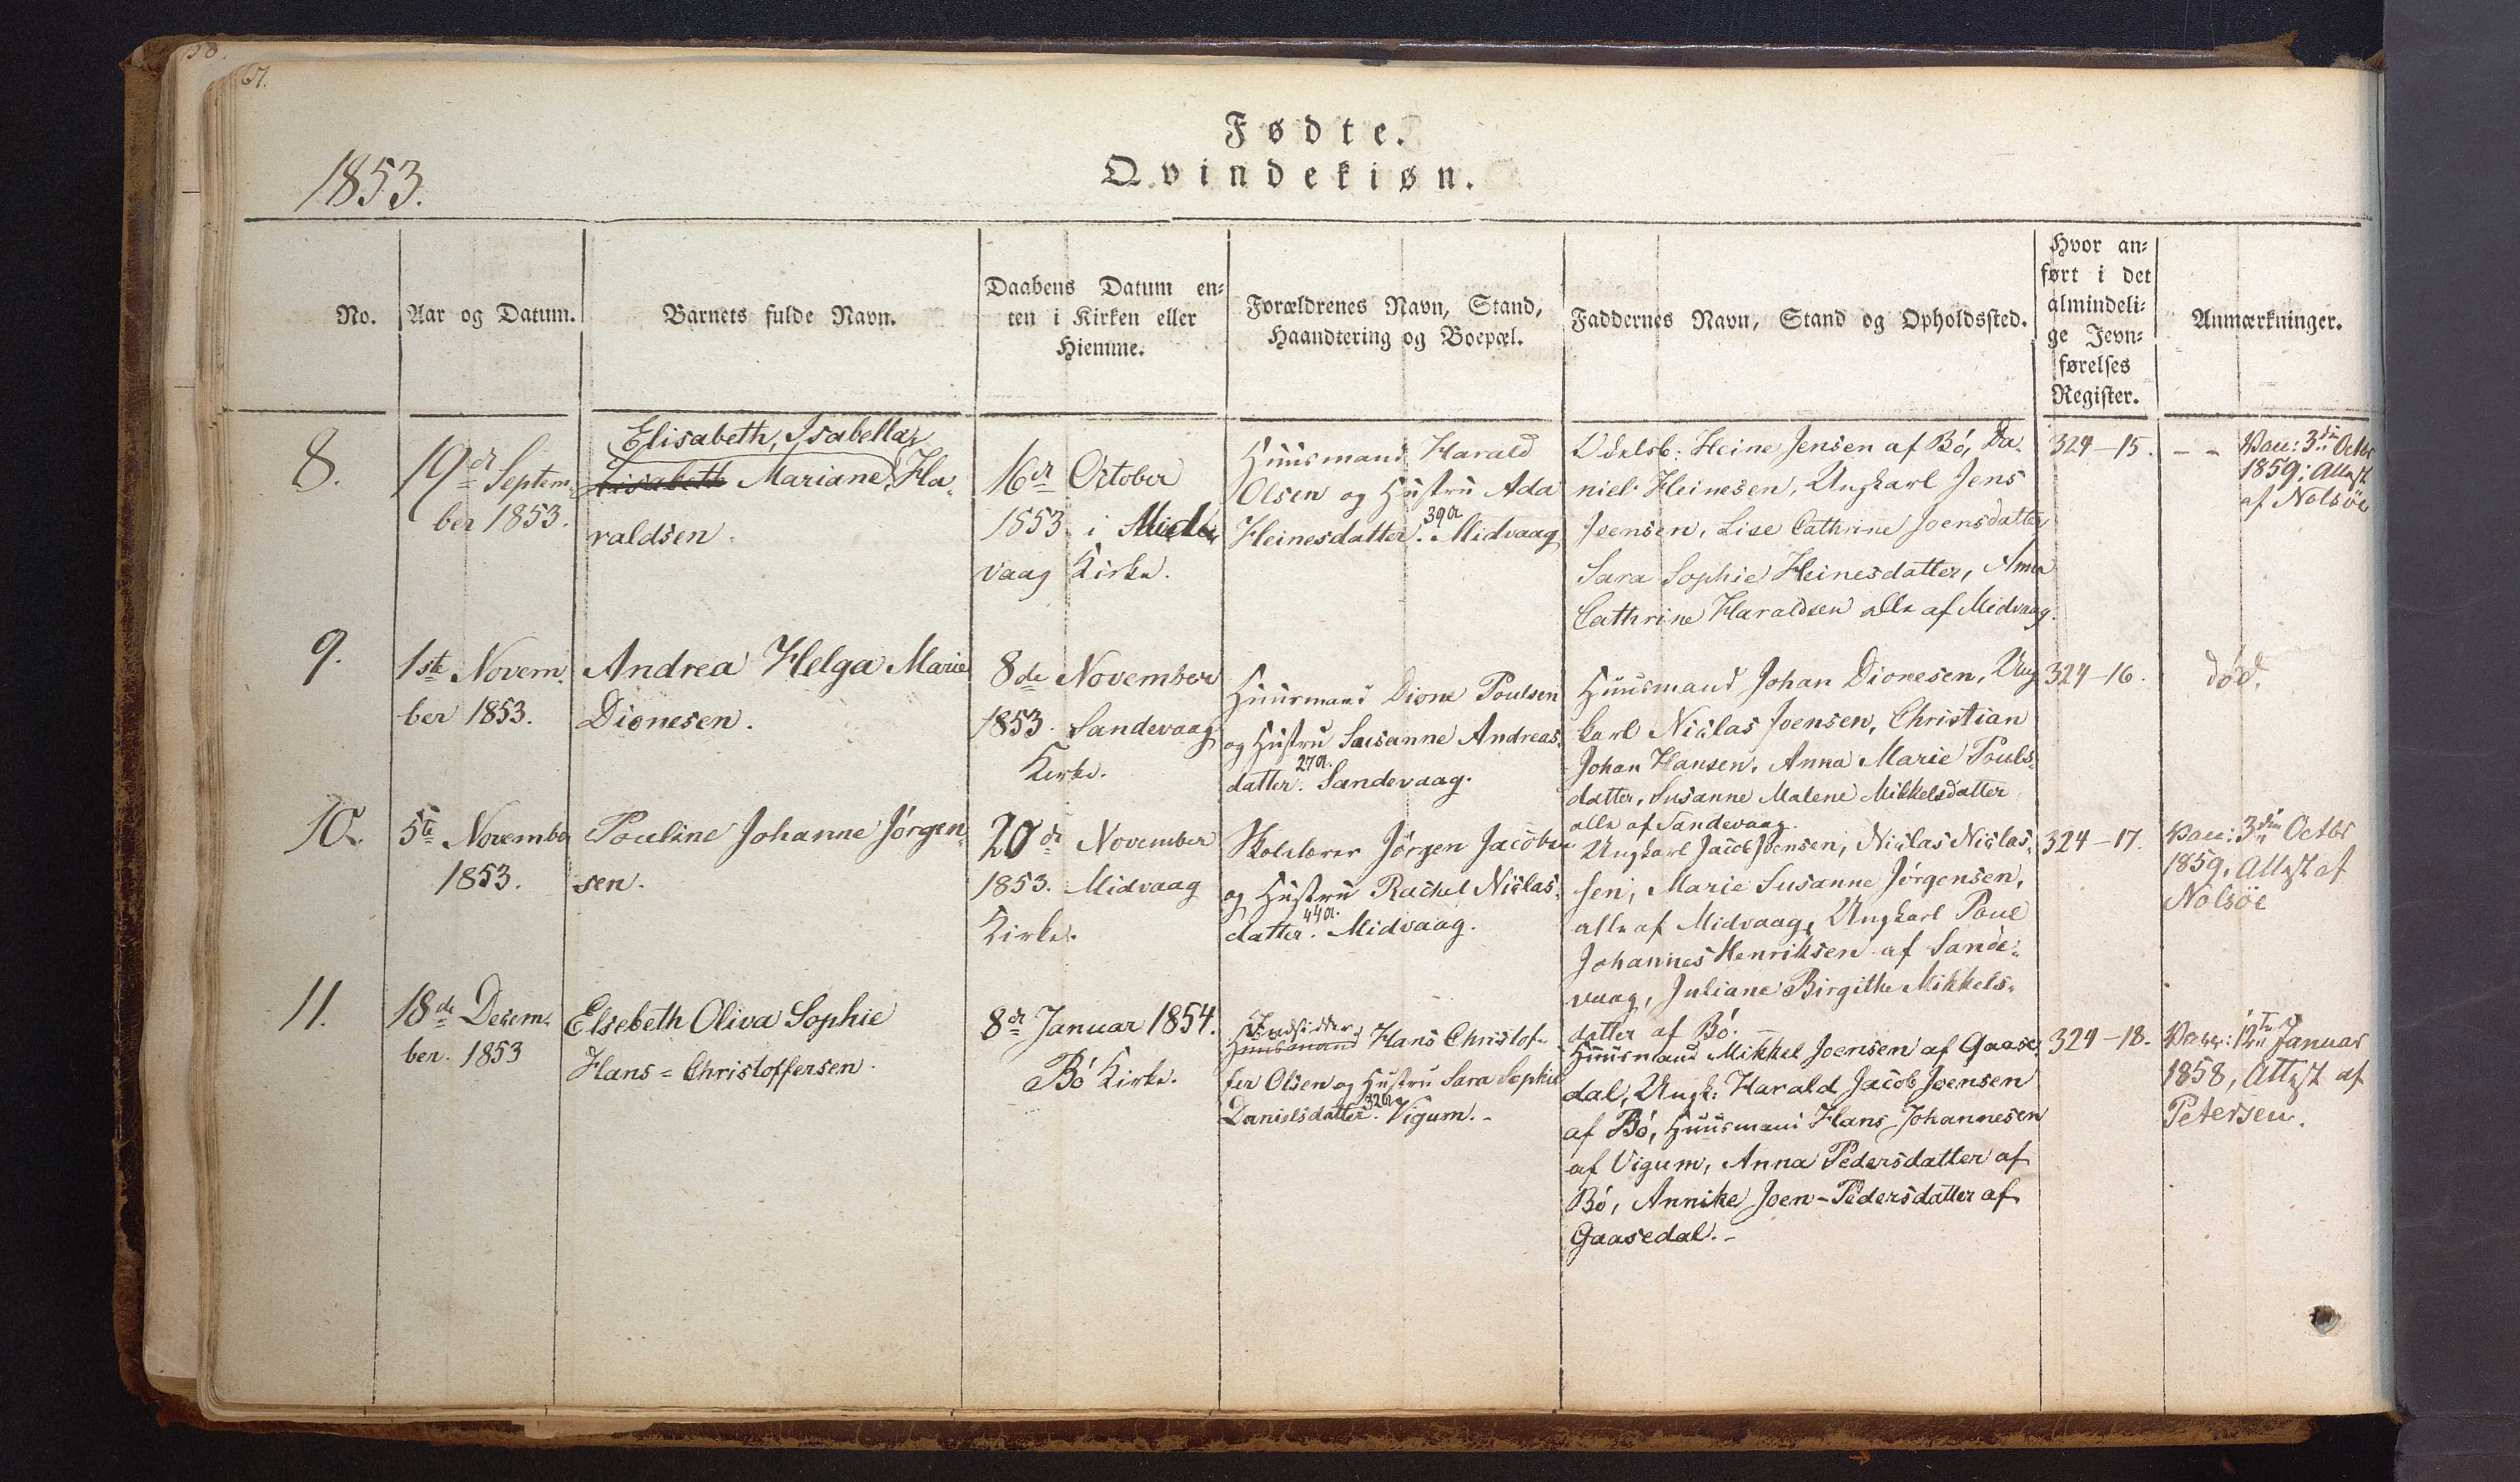 67.
1853.
Fødte.
Qvindekiøn.
No.
Aar og Datum.
Barnets fulde Navn.
Daabens Datum en-
ten i Kirken eller
Hiemme.
Forældrenes Navn, Stand,
Haandtering og Boepæl.
Faddernes Navn, Stand og Opholdssted.
Hvor an-
ført i det
almindeli-
ge Jevn-
førelses
Register.
Anmærkninger.
8.
19de Septem-
ber 1853.
Elisabeth, Isabella,
Lisabeth Mariane Ha-
raldsen.
16de October
1853 i Mid-
vaag Kirke.
Huusmand Harald
Olsen og Hustru Ada
Heinesdatter. 39 a Midvaag
Odelsb: Heine Jensen af Bó, Da-
niel Heinesen, Ungkarl Jens
Joensen, Lise Cathrine Joensdatter
Sara Sophie Heinesdatter, Anna
Cathrine Haraldsen alle af Midvaag.
324-15.
- - Vacc: 3die Octbr
1859; Attest
af Nolsöe
9.
1ste Novem-
ber 1853.
Andrea Helga Marie
Dionesen.
8de November
1853. Sandevaag
Kirke.
Huusmand Dione Poulsen
og Hustru Susanne Andreas-
datter. 27 a. Sandevaag.
Huusmand Johan Dionesen, Ung-
karl Niclas Joensen, Christian
Johan Hansen, Anna Marie Pouls-
datter, Susanne Malene Mikkelsdatter
alle af Sandevaag.
324-16.
død.
10.
5te November
1853.
Pouline Johanne Jörgen-
sen.
20de November
1853. Midvaag
Kirke.
Skolelærer Jörgen Jacobsen
og Hustru Rachel Niclas-
datter. 44 a. Midvaag.
Ungkarl Jacob Joensen, Niclas Niclas-
sen, Marie Susanne Jörgensen,
alle af Midvaag, Ungkarl Poul
Johannes Henriksen af Sande-
vaag, Juliane Birgithe Mikkels-
datter af Bó.
324-17.
Vacc: 3die Octbr
1859, Attest af
Nolsöe
11.
18de Decem-
ber. 1853
Elsebeth Oliva Sophie
Hans=Christoffersen.
8de Januar 1854.
Bó Kirke.
Indsidder
Huusmand Hans Christof-
fer Olsen og Hustru Sara Sophie
Danielsdatter. 32 a. Vigum.-
Huusmand Mikkel Joensen af Gaase-
dal, Ungk: Harald Jacob Joensen
af Bó, Huusmand Hans Johannesen
af Vigum, Anna Pedersdatter af
Bó, Annike Joen-Pedersdatter af
Gaasedal.-
324-18.
Vacc: 12te Januar
1858, Attest af
Petersen.